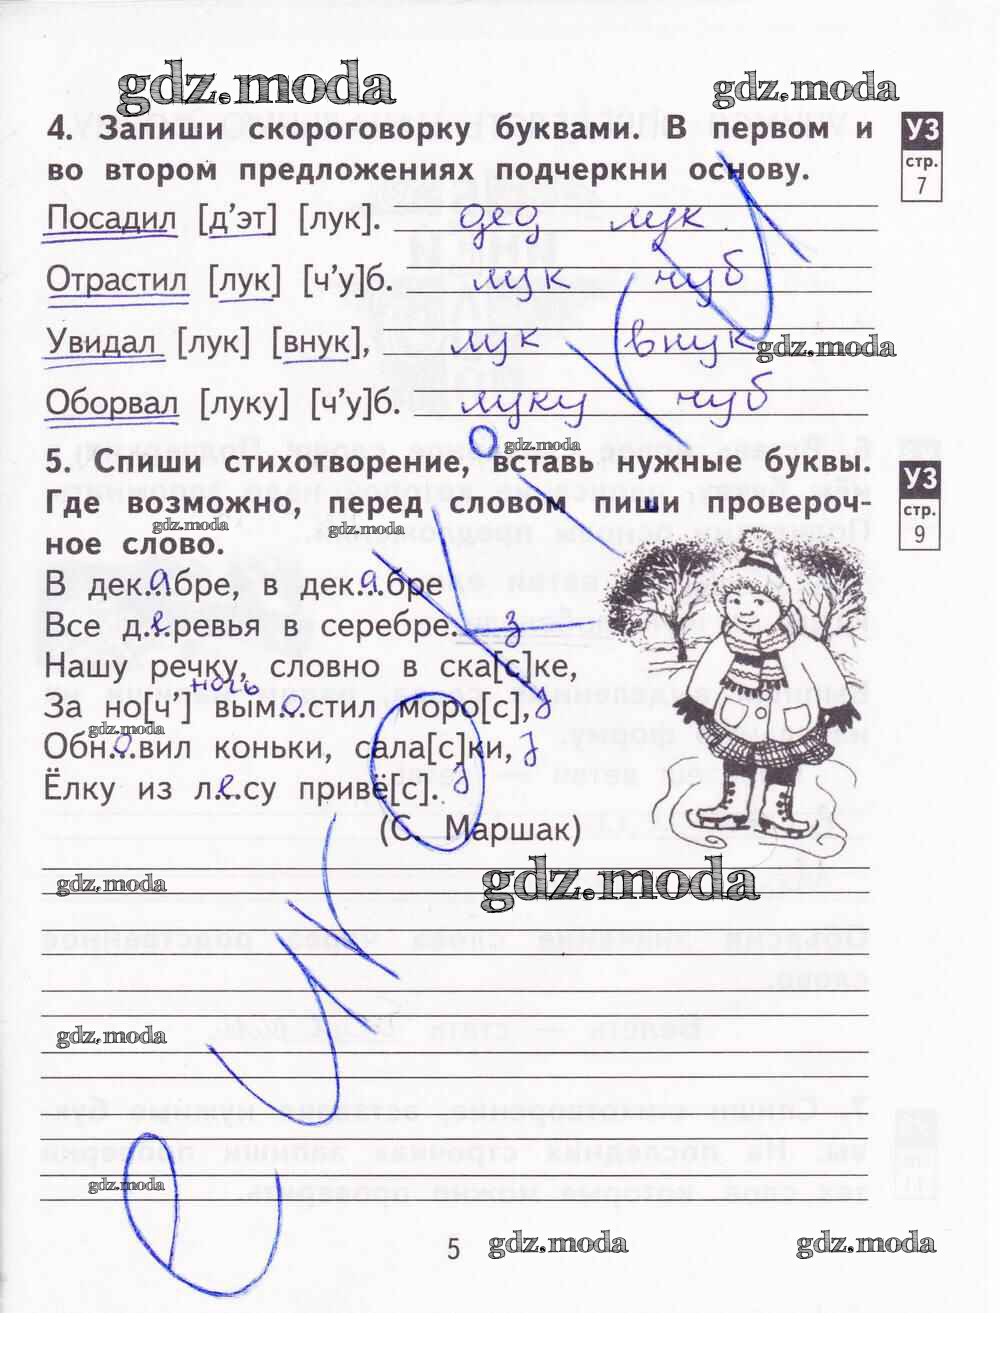 gdz.moda
gdz.moda
4. Запиши скороговорку буквами. В первом и
во втором предложениях подчеркни основу.
УЗ
стр.
7
Посадил [д’эт] [лук]. дед лук
Отрастил [лук] [ч’у]б. лук чуб
Увидал [лук] [внук], лук внук
gdz.moda
Оборвал [луку] [ч’у]б. луку чуб
gdz.moda
5. Спиши стихотворение, вставь нужные буквы.
Где возможно, перед словом пиши провероч-
gdz.moda gdz.moda
ное слово.
УЗ
стр.
9
В дек.а.бре, в дек.а.бре
Все д.е.ревья в серебре.
з
Нашу речку, словно в ска[с]ке,
ночь
За но[ч’] вым.о.стил моро[с], з
gdz.moda
Обн.о.вил коньки, сала[с]ки, з
Ёлку из л.е.су привё[с]. з
(С. Маршак)
gdz.moda
gdz.moda
gdz.moda
gdz.moda
5
gdz.moda
gdz.moda